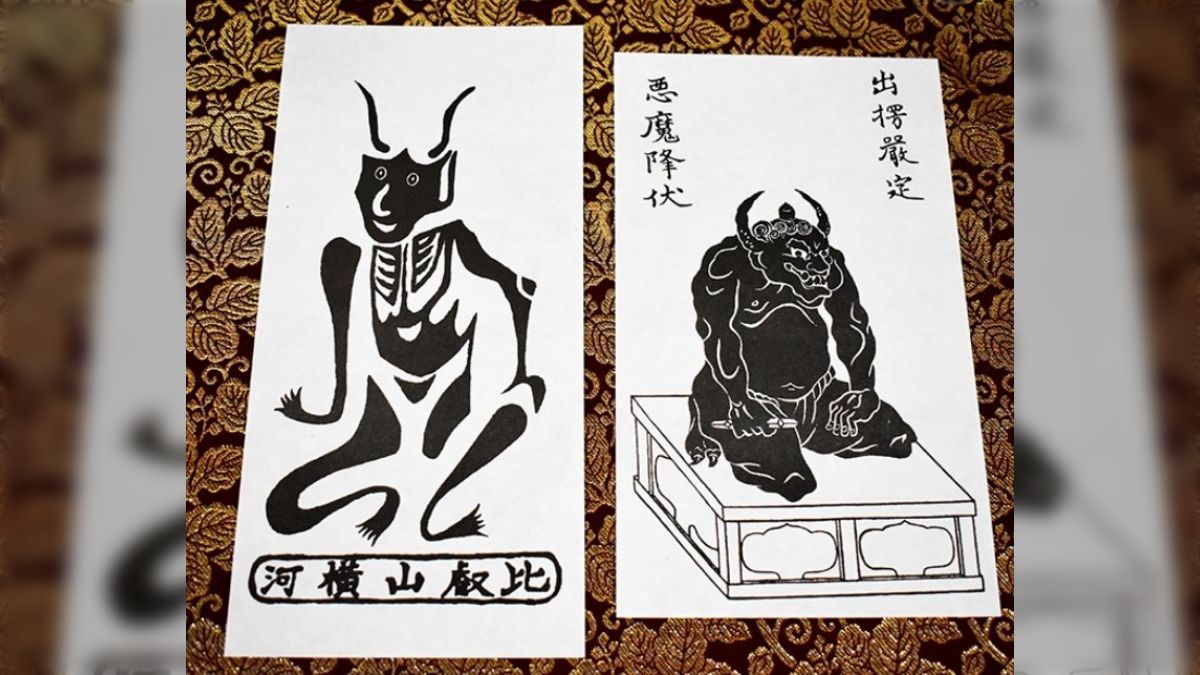 比叡山横河
出楞嚴定
悪魔降伏